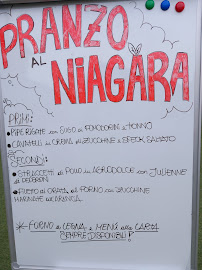 PRANZO
AL
NIAGARA
PRIMI:
• PIPE RIGATE CON SUGO DI POMODORINI E TONNO
• CAVATELLI IN CREMA DI ZUCCHINE E SPECK SALTATO
SECONDI:
• STRACCETTI DI POLLO IN AGRODOLCE CON JULIENNE
DI PEPERONI
• FILETTO DI ORATA AL FORNO CON ZUCCHINE
MARINATE ALL'ARANCIA
* FORNO A LEGNA E MENÙ ALLA CARTA
SEMPRE DISPONIBILI!